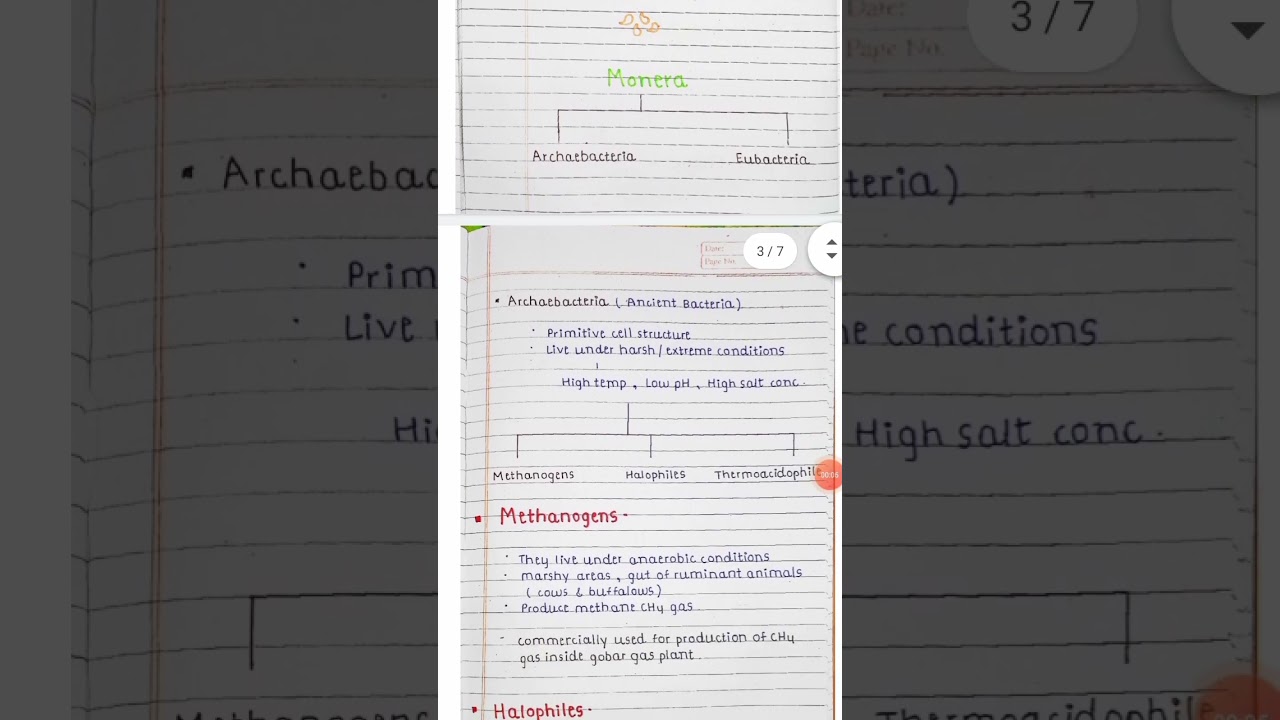 Monera
Archaebacteria
Eubacteria
Date:
Page No.
3 / 7
▪ Archaebacteria ( Ancient Bacteria )
· Primitive cell structure
· Live under harsh / extreme conditions
High temp , Low pH , High salt conc .
Methanogens
Halophiles
Thermoacidophil
00:06
▪ Methanogens -
· They live under anaerobic conditions
· marshy areas , gut of ruminant animals
( cows & buffalows )
· Produce methane CH4 gas
- commercially used for production of CH4
gas inside gobar gas plant .
▪ Halophiles -
Date:
Page No.
3 / 7
▪ Archaebac
teria )
· Prim
· Live
e conditions
Hi
High salt conc .